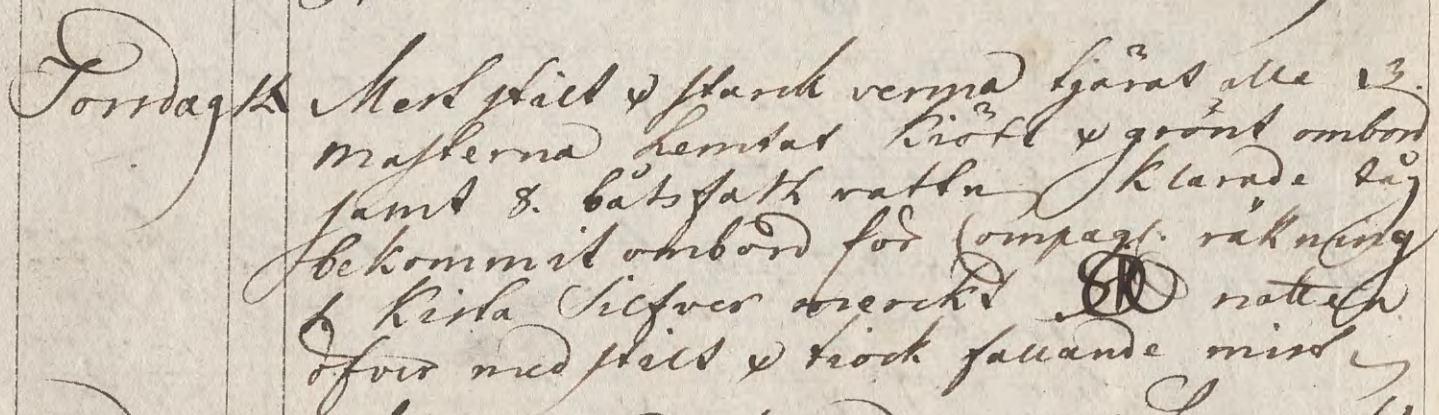 Torsdag 14 Mest stilt & starck verma tjärat alla 3.
masterna hemtat kiött & grönt ombord
samt 8. båtsfatk vattn, klarade tåg
bekommit ombord för Compags. räkning
1 Kista Silfver merckt natten
öfver med stilt & tiock fallande mist